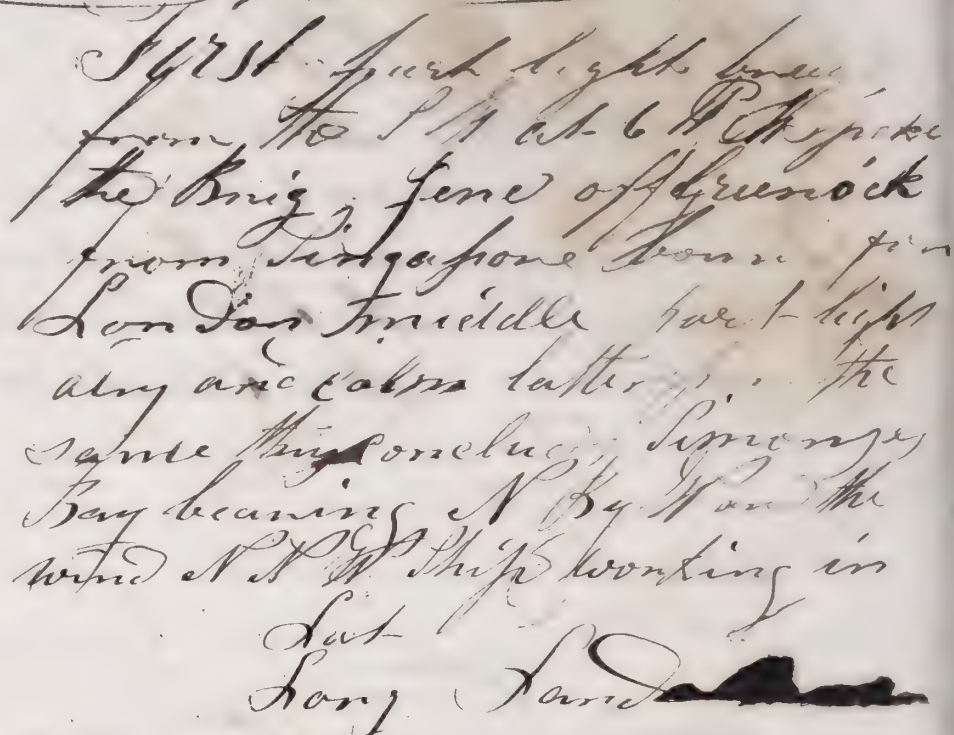 First part light bree
from the S W at 6 P M spoke
the Brig, Jene off Greenock
from Singapore boun for
London middle part light
airy and calm latter the
same thus conclu Simonzes
Bay bearing N By W and the
wind N N W Ship working in
Lat
Long Land